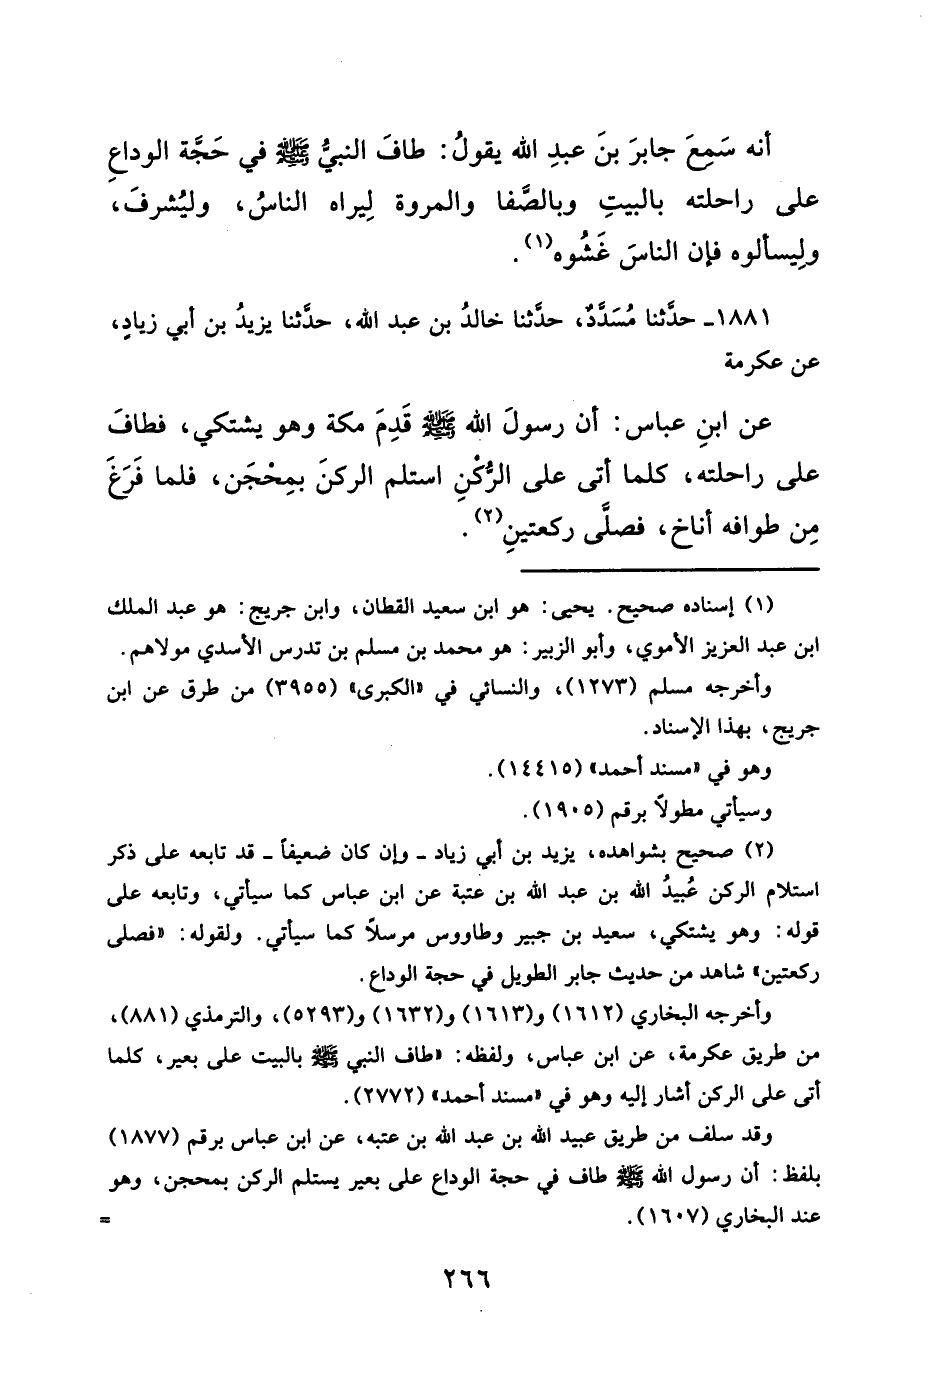 أنه سَمِعَ جابرَ بنَ عبدِ الله يقولُ: طافَ النبيُّ ﷺ في حَجَّة الوداعِ
على راحلته بالبيتِ وبالصَّفا والمروة لِيراه الناسُ، وليُشرفَ،
ولِيسألوه فإن الناسَ غَشُوه(١).
١٨٨١ـ حدَّثنا مُسَدَّدٌ، حدَّثنا خالدُ بن عبد الله، حدَّثنا يزيدُ بن أبي زيادٍ،
عن عكرمة
عن ابنِ عباس: أن رسولَ الله ﷺ قَدِمَ مكة وهو يشتكي، فطافَ
على راحلته، كلما أتى على الرُّكْنِ استلم الركنَ بمِحْجَن، فلما فَرَغَ
مِن طوافه أناخ، فصلَّى ركعتينِ(٢).
(١) إسناده صحيح. يحيى: هو ابن سعيد القطان، وابن جريج: هو عبد الملك
ابن عبد العزيز الأموي، وأبو الزبير: هو محمد بن مسلم بن تدرس الأسدي مولاهم.
وأخرجه مسلم (١٢٧٣)، والنسائي في «الكبرى» (٣٩٥٥) من طرق عن ابن
جريج، بهذا الإسناد.
وهو في «مسند أحمد» (١٤٤١٥).
وسيأتي مطولاً برقم (١٩٠٥).
(٢) صحيح بشواهده، يزيد بن أبي زياد ـ وإن كان ضعيفاً ـ قد تابعه على ذكر
استلام الركن عُبيدُ الله بن عبد الله بن عتبة عن ابن عباس كما سيأتي، وتابعه على
قوله: وهو يشتكي، سعيد بن جبير وطاووس مرسلاً كما سيأتي. ولقوله: «فصلى
ركعتين» شاهد من حديث جابر الطويل في حجة الوداع.
وأخرجه البخاري (١٦١٢) و(١٦١٣) و(١٦٣٢) و(٥٢٩٣)، والترمذي (٨٨١)،
من طريق عكرمة، عن ابن عباس، ولفظه: «طاف النبي ﷺ بالبيت على بعير، كلما
أتى على الركن أشار إليه وهو في «مسند أحمد» (٢٧٧٢).
وقد سلف من طريق عبيد الله بن عبد الله بن عتبه، عن ابن عباس برقم (١٨٧٧)
بلفظ: أن رسول الله ﷺ طاف في حجة الوداع على بعير يستلم الركن بمحجن، وهو
عند البخاري (١٦٠٧). =
٢٦٦